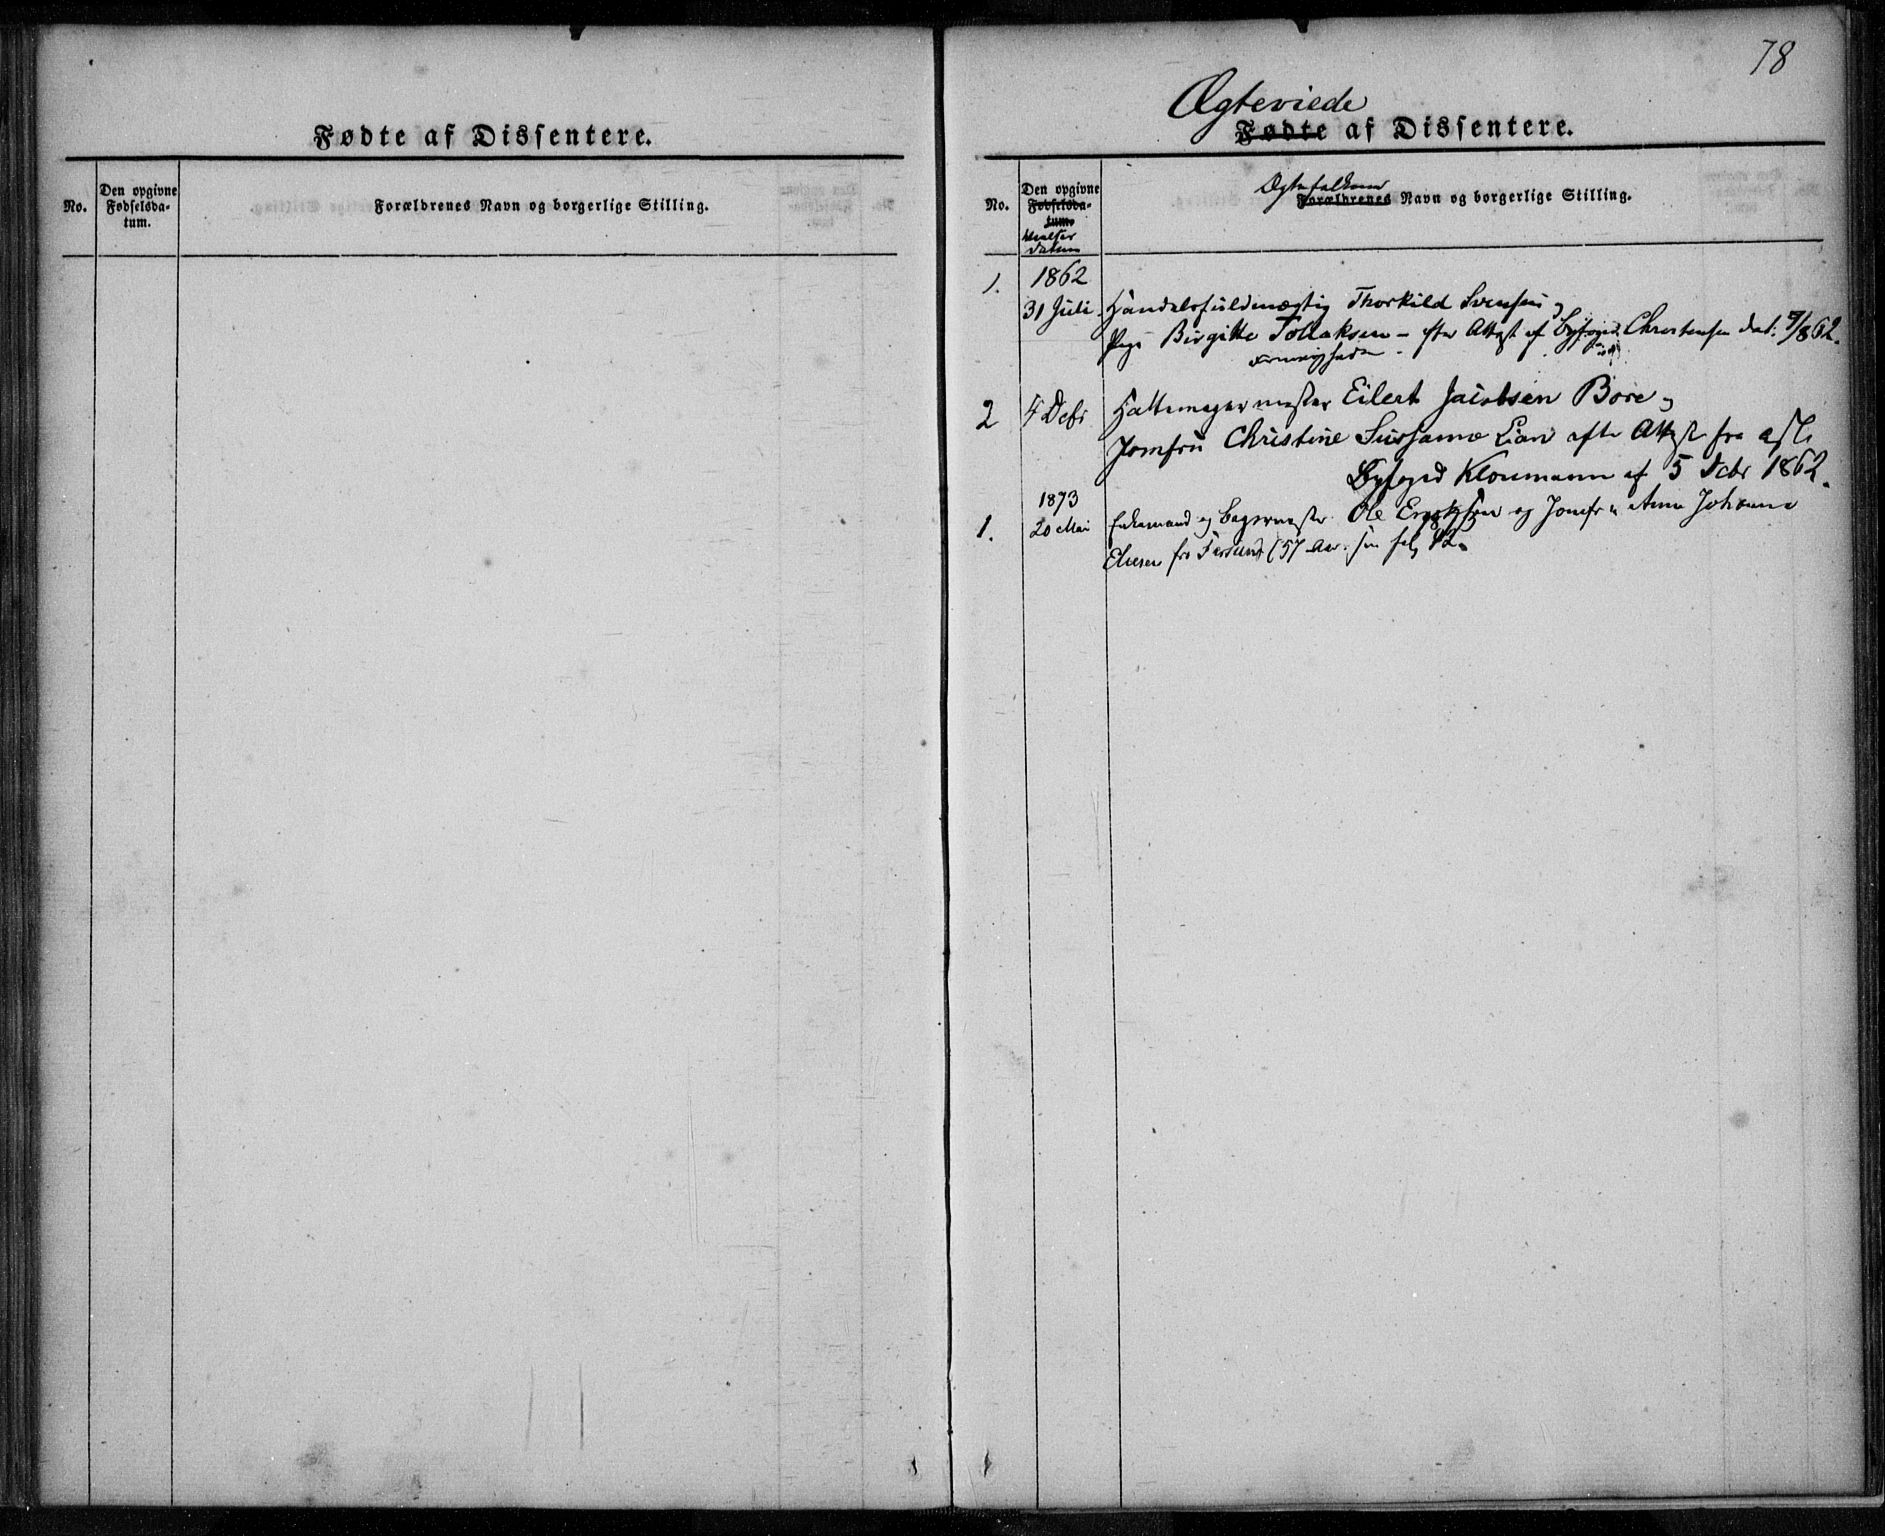 Fødte af Dissentere.
No.
Den opgivne
Fødselsda-
tum.
Forældrenes Navn og borgerlige Stilling.
78
Ægteviede
Fødte af Dissentere.
No.
Den opgivne
Fødselsda-
tum.
Vielses
datum
Ægtefolkenes
Forældrenes Navn og borgerlige Stilling.
1. 1862
31 Juli Handelsfuldmægtig Thorkild Svensen og
Pige Birgitte Tollaksen – efter Attest af Byfoged Christensen dat: 9/8 62.
2 4 Decbr Hattemagermester Eilert Jacobsen Bore og
Jomfru Christine Susanne Lian efter Attest fra
Byfoged Kloumann af 5 Decbr 1862.
1873
1. 20 Mai Enkemand og Bagermester Ole Ericksen og Jomfru Anne Johanne
Eliesen fra Farsund (57 Aar.